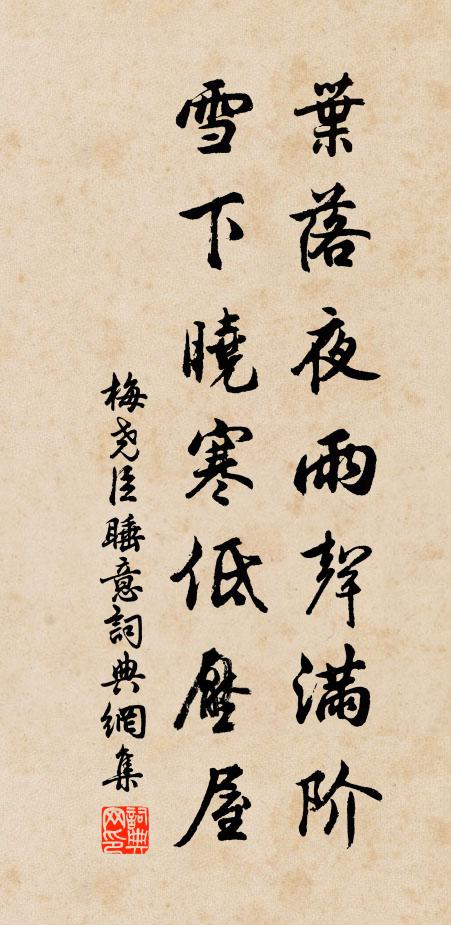 葉落夜雨聲滿阶
雪下曉寒低壓屋
梅尧臣睡意詞典網集
詞典网印